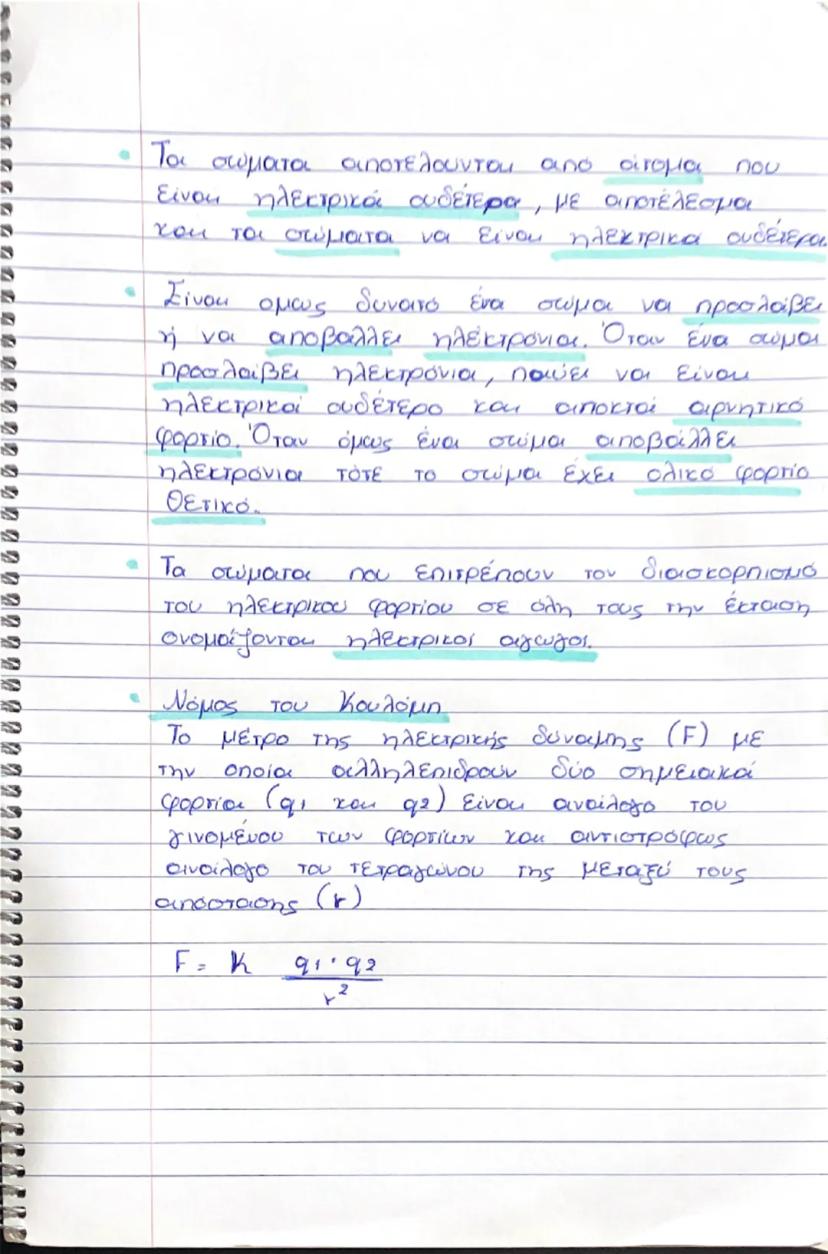 Τα σώματα αποτελούνται από άτομα που
είναι ηλεκτρικά ουδέτερα, με αποτέλεσμα
και τα σώματα να είναι ηλεκτρικά ουδέτερα
Είναι ομως δυνατό ένα σώμα να προσλάβει
ή να αποβάλλει ηλεκτρόνια. Όταν ένα σώμα
προσλάβει ηλεκτρόνια, παύει να είναι
ηλεκτρικά ουδέτερο και αποκτά αρνητικό
φορτίο. Όταν όμως ένα σώμα αποβάλλει
ηλεκτρόνια τότε το σώμα έχει ολικό φορτίο
θετικό.
Τα σώματα που επιτρέπουν τον διασκορπισμό
του ηλεκτρικού φορτίου σε όλη τους την έκταση
ονομάζονται ηλεκτρικοί αγωγοί.
Νόμος του Κουλόμπ
Το μέτρο της ηλεκτρικής δύναμης (F) με
την οποία αλληλεπιδρούν δύο σημειακά
φορτία (q1 και q2) είναι ανάλογο του
γινομένου των φορτίων και αντιστρόφως
ανάλογο του τετραγώνου της μεταξύ τους
απόστασης (r)
F = K q1 · q2 / r²